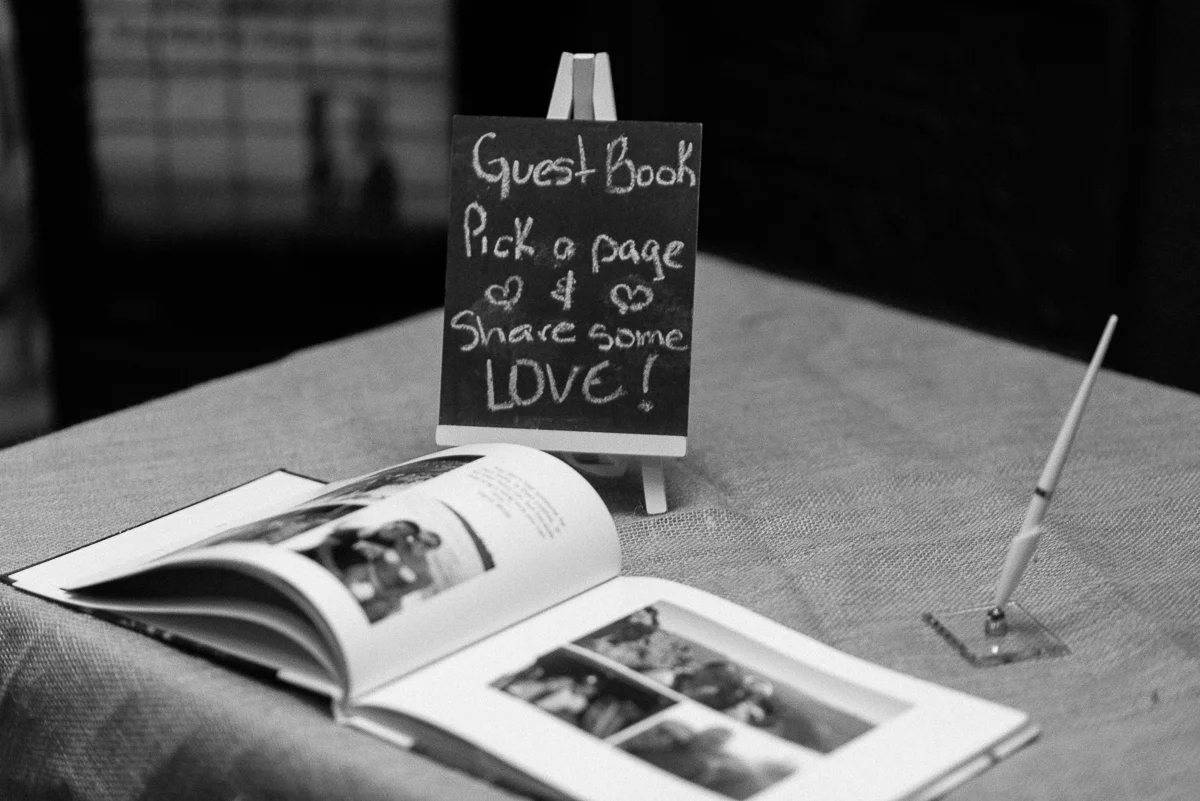 Guest Book
Pick a page
&
Share some
LOVE!